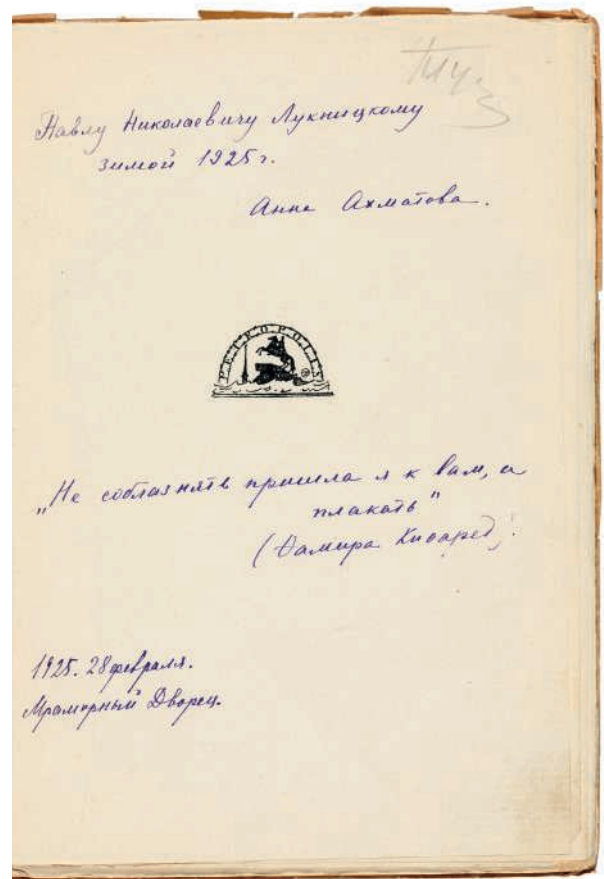 Павлу Николаевичу Лукницкому
зимой 1925 г.
Анна Ахматова.
PETROPOLIS
„Не соблазнять пришла я к вам, а
плакать"
(Фамира Кифаред)
1925. 28 февраля.
Мраморный Дворец.